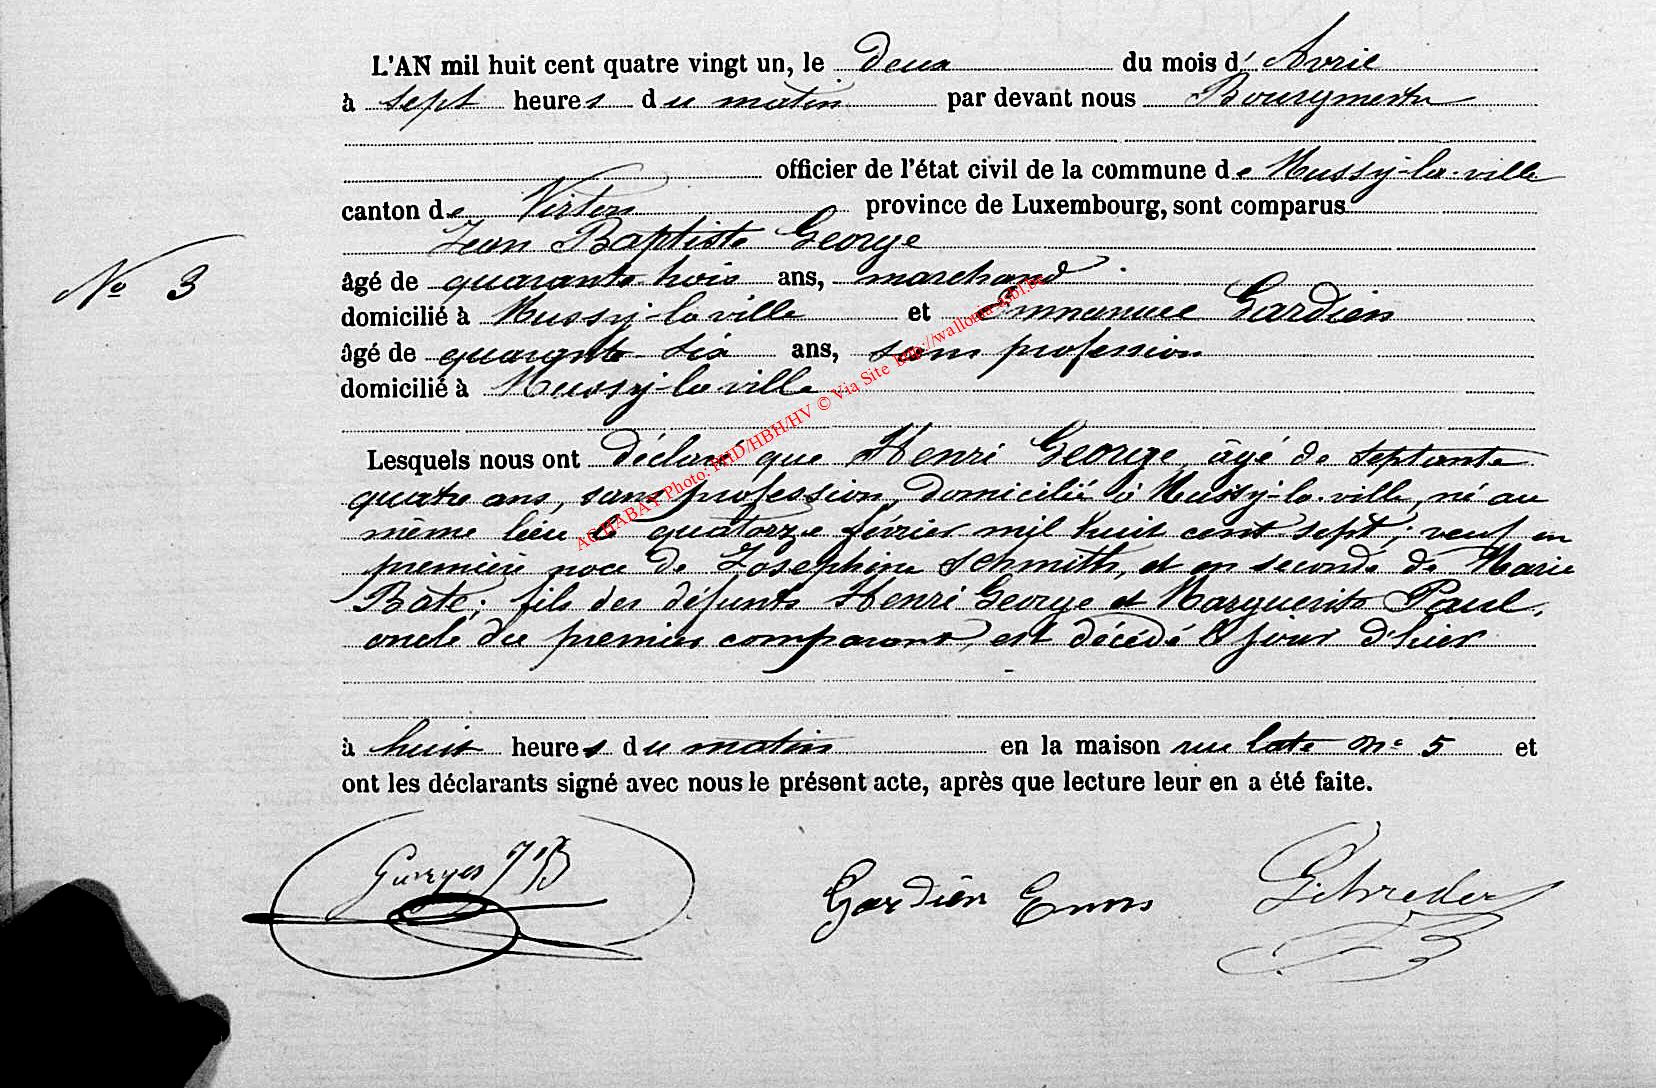 L'AN mil huit cent quatre vingt un, le deux du mois d' Avril
à sept heures du matin par devant nous Bourgmestre
officier de l'état civil de la commune de Mussy-la-ville
canton de Virton province de Luxembourg, sont comparus
Jean Baptiste George
âgé de quarante trois ans, marchand
N° 3
domicilié à Mussy-la ville et Emmanuel Gardien
âgé de quarante six ans, sans profession
domicilié à Mussy-la ville
Lesquels nous ont déclaré que Henri George, âgé de septante
quatre ans, sans profession, domicilié à Mussy-la-ville, né au
même lieu le quatorze février mil huit cent sept; veuf en
première noce de Josephine Schmitth, et en seconde de Marie
Bate; fils des défunts Henri George et Marguerite Paul,
oncle du premier comparant, est décédé le jour d'hier
à huit heures du matin en la maison rue late n° 5 et
ont les déclarants signé avec nous le présent acte, après que lecture leur en a été faite.
Gurges JB Gardien Emm
AGHABAY Photo: PHD/HBH/HV © Via Site http://wallonia-asbl.be